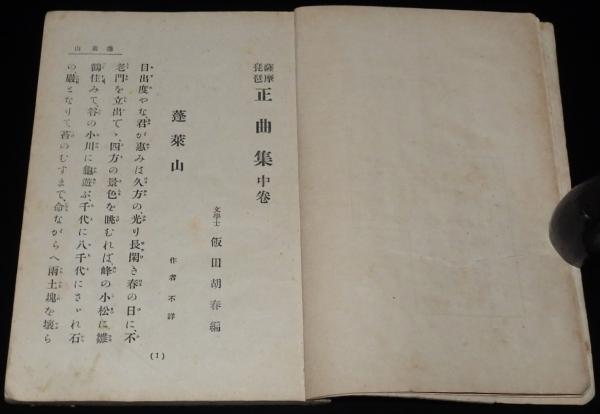 薩摩琵琶 正曲集 中卷
文學士 飯田胡春編
蓬萊山
作者不詳
目出度やな君が惠みは久方の光り長閑き春の日に、不
老門を立出てゝ四方の景色を眺むれば、峰の小松に雛
鶴住みて、谷の小川に龜遊ぶ、千代に八千代にさゞれ石
の巖となりて苔のむすまで、命ながらへ雨土塊を壞ら
(1)
蓬萊山